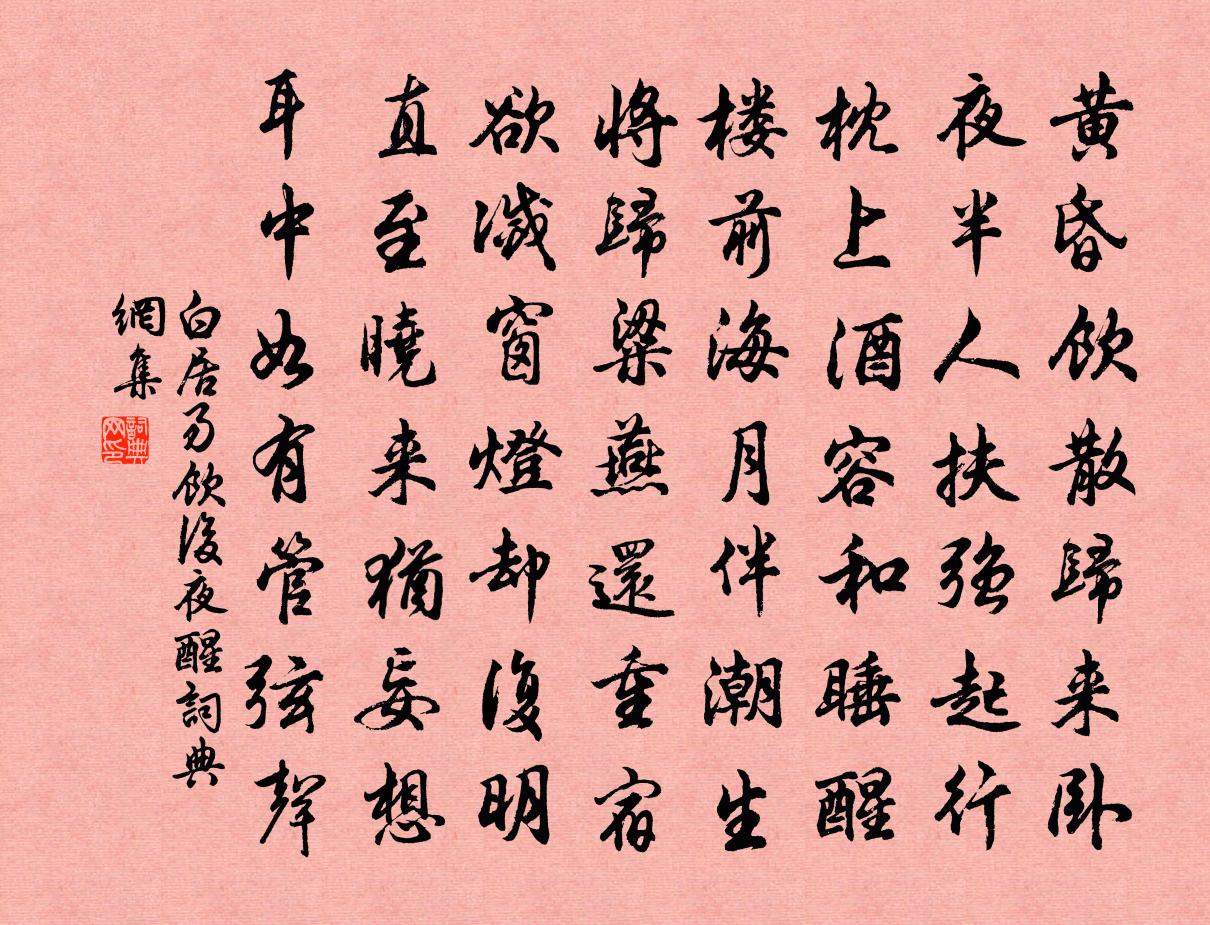 黄昏飲散歸来卧
夜半人扶強起行
枕上酒容和睡醒
楼前海月伴潮生
將歸梁燕還重宿
欲滅窗燈却復明
直至曉来猶妄想
耳中如有管弦聲
白居易飲後夜醒詞典
網集
詞典
网印